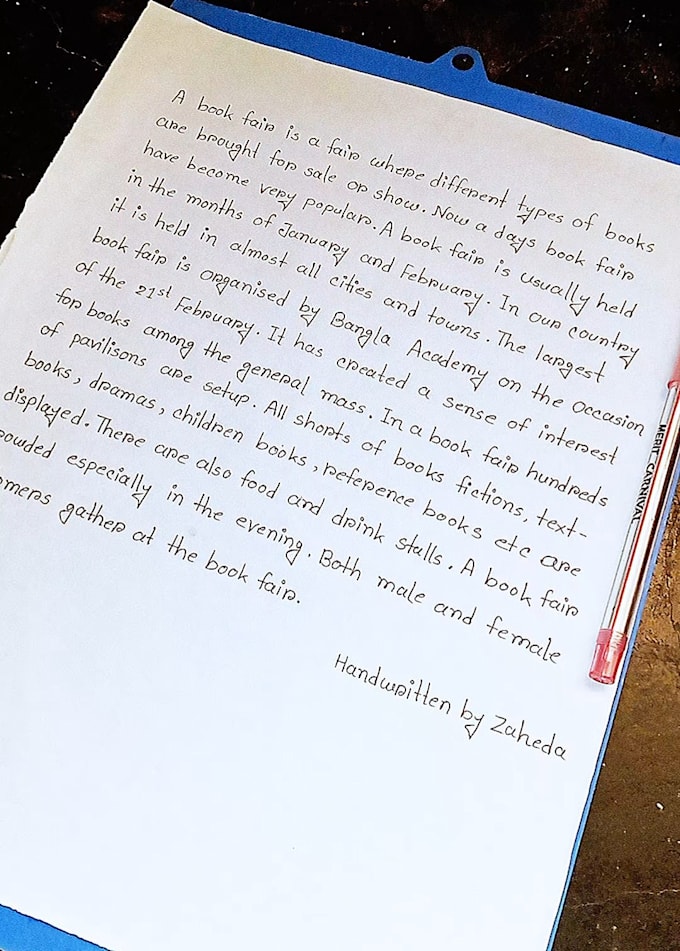 A book fair is a fair where different types of books
are brought for sale or show. Now a days book fair
have become very popular. A book fair is usually held
in the months of January and February. In our country
it is held in almost all cities and towns. The largest
book fair is organised by Bangla Academy on the occasion
of the 21st February. It has created a sense of interest
for books among the general mass. In a book fair hundreds
of pavilisons are setup. All shorts of books fictions, text-
books, dramas, children books, reference books etc are
displayed. There are also food and drink stalls. A book fair
rowded especially in the evening. Both male and female
omers gather at the book fair.
Handwritten by Zaheda
MERIT CARNIVAL